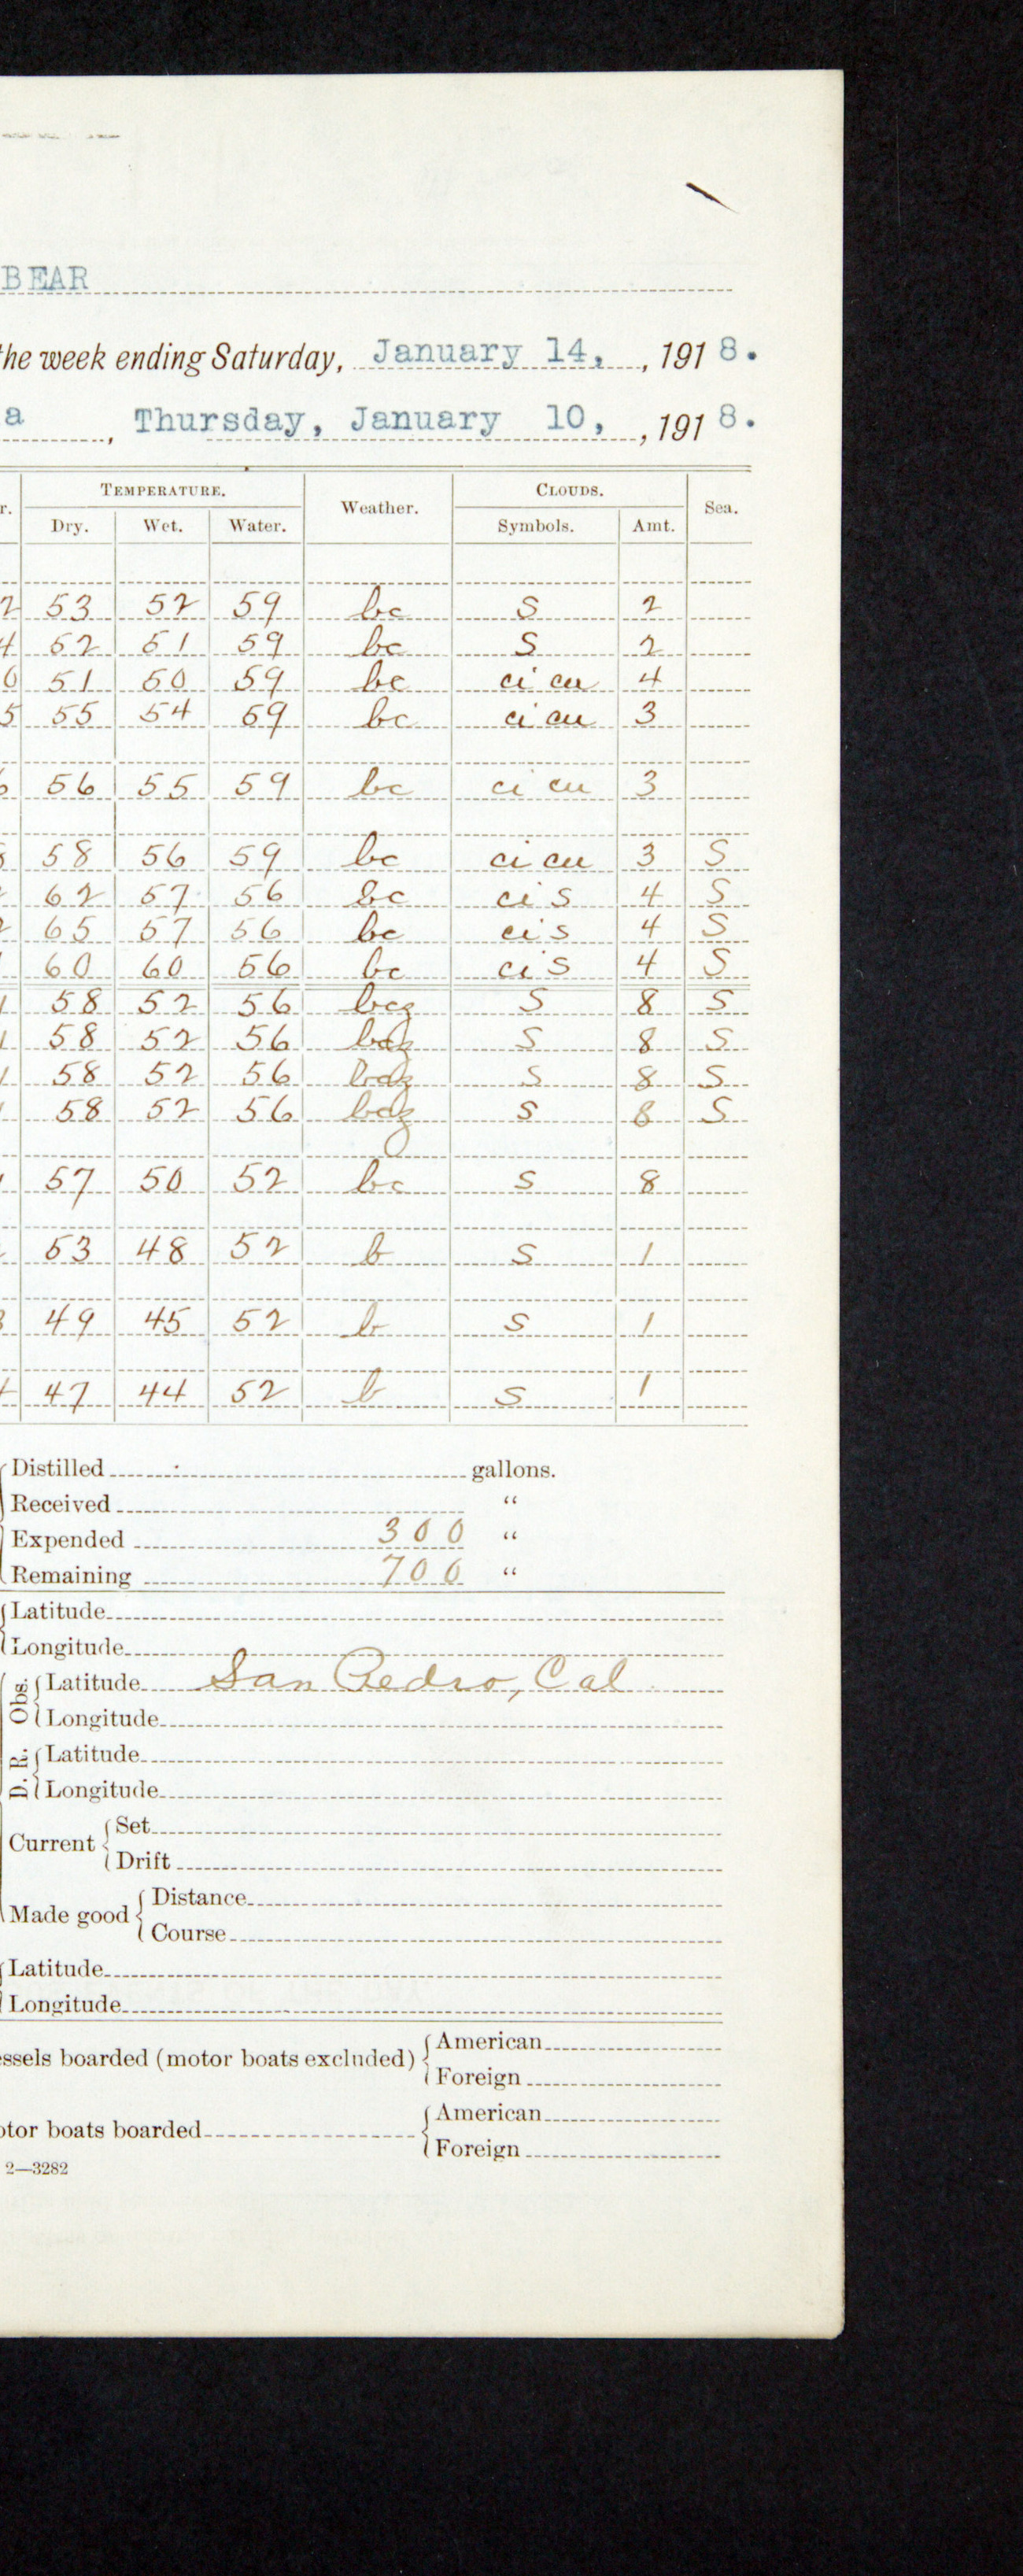 BEAR
the week ending Saturday, January 14, , 191 8.
a , Thursday, January 10, , 191 8.
r. TEMPERATURE. Weather. CLOUDS. Sea.
Dry. Wet. Water. Symbols. Amt.
2 53 52 59 bc S 2
4 52 51 59 bc S 2
0 51 50 59 bc ci cu 4
5 55 54 59 bc ci cu 3
56 55 59 bc ci cu 3
58 56 59 bc ci cu 3 S
62 57 56 bc ci s 4 S
65 57 56 bc ci s 4 S
60 60 56 bc ci S 4 S
58 52 56 bcz S 8 S
58 52 56 bcz S 8 S
58 52 56 bcz S 8 S
58 52 56 bcz S 8 S
57 50 52 bc S 8
53 48 52 b S 1
49 45 52 b S 1
47 44 52 b S 1
Distilled gallons.
Received "
Expended 300 "
Remaining 700 "
Latitude
Longitude
Obs. Latitude San Pedro, Cal
Longitude
D. R. Latitude
Longitude
Current Set
Drift
Made good Distance
Course
Latitude
Longitude
essels boarded (motor boats excluded) American
Foreign
otor boats boarded American
Foreign
2—3282